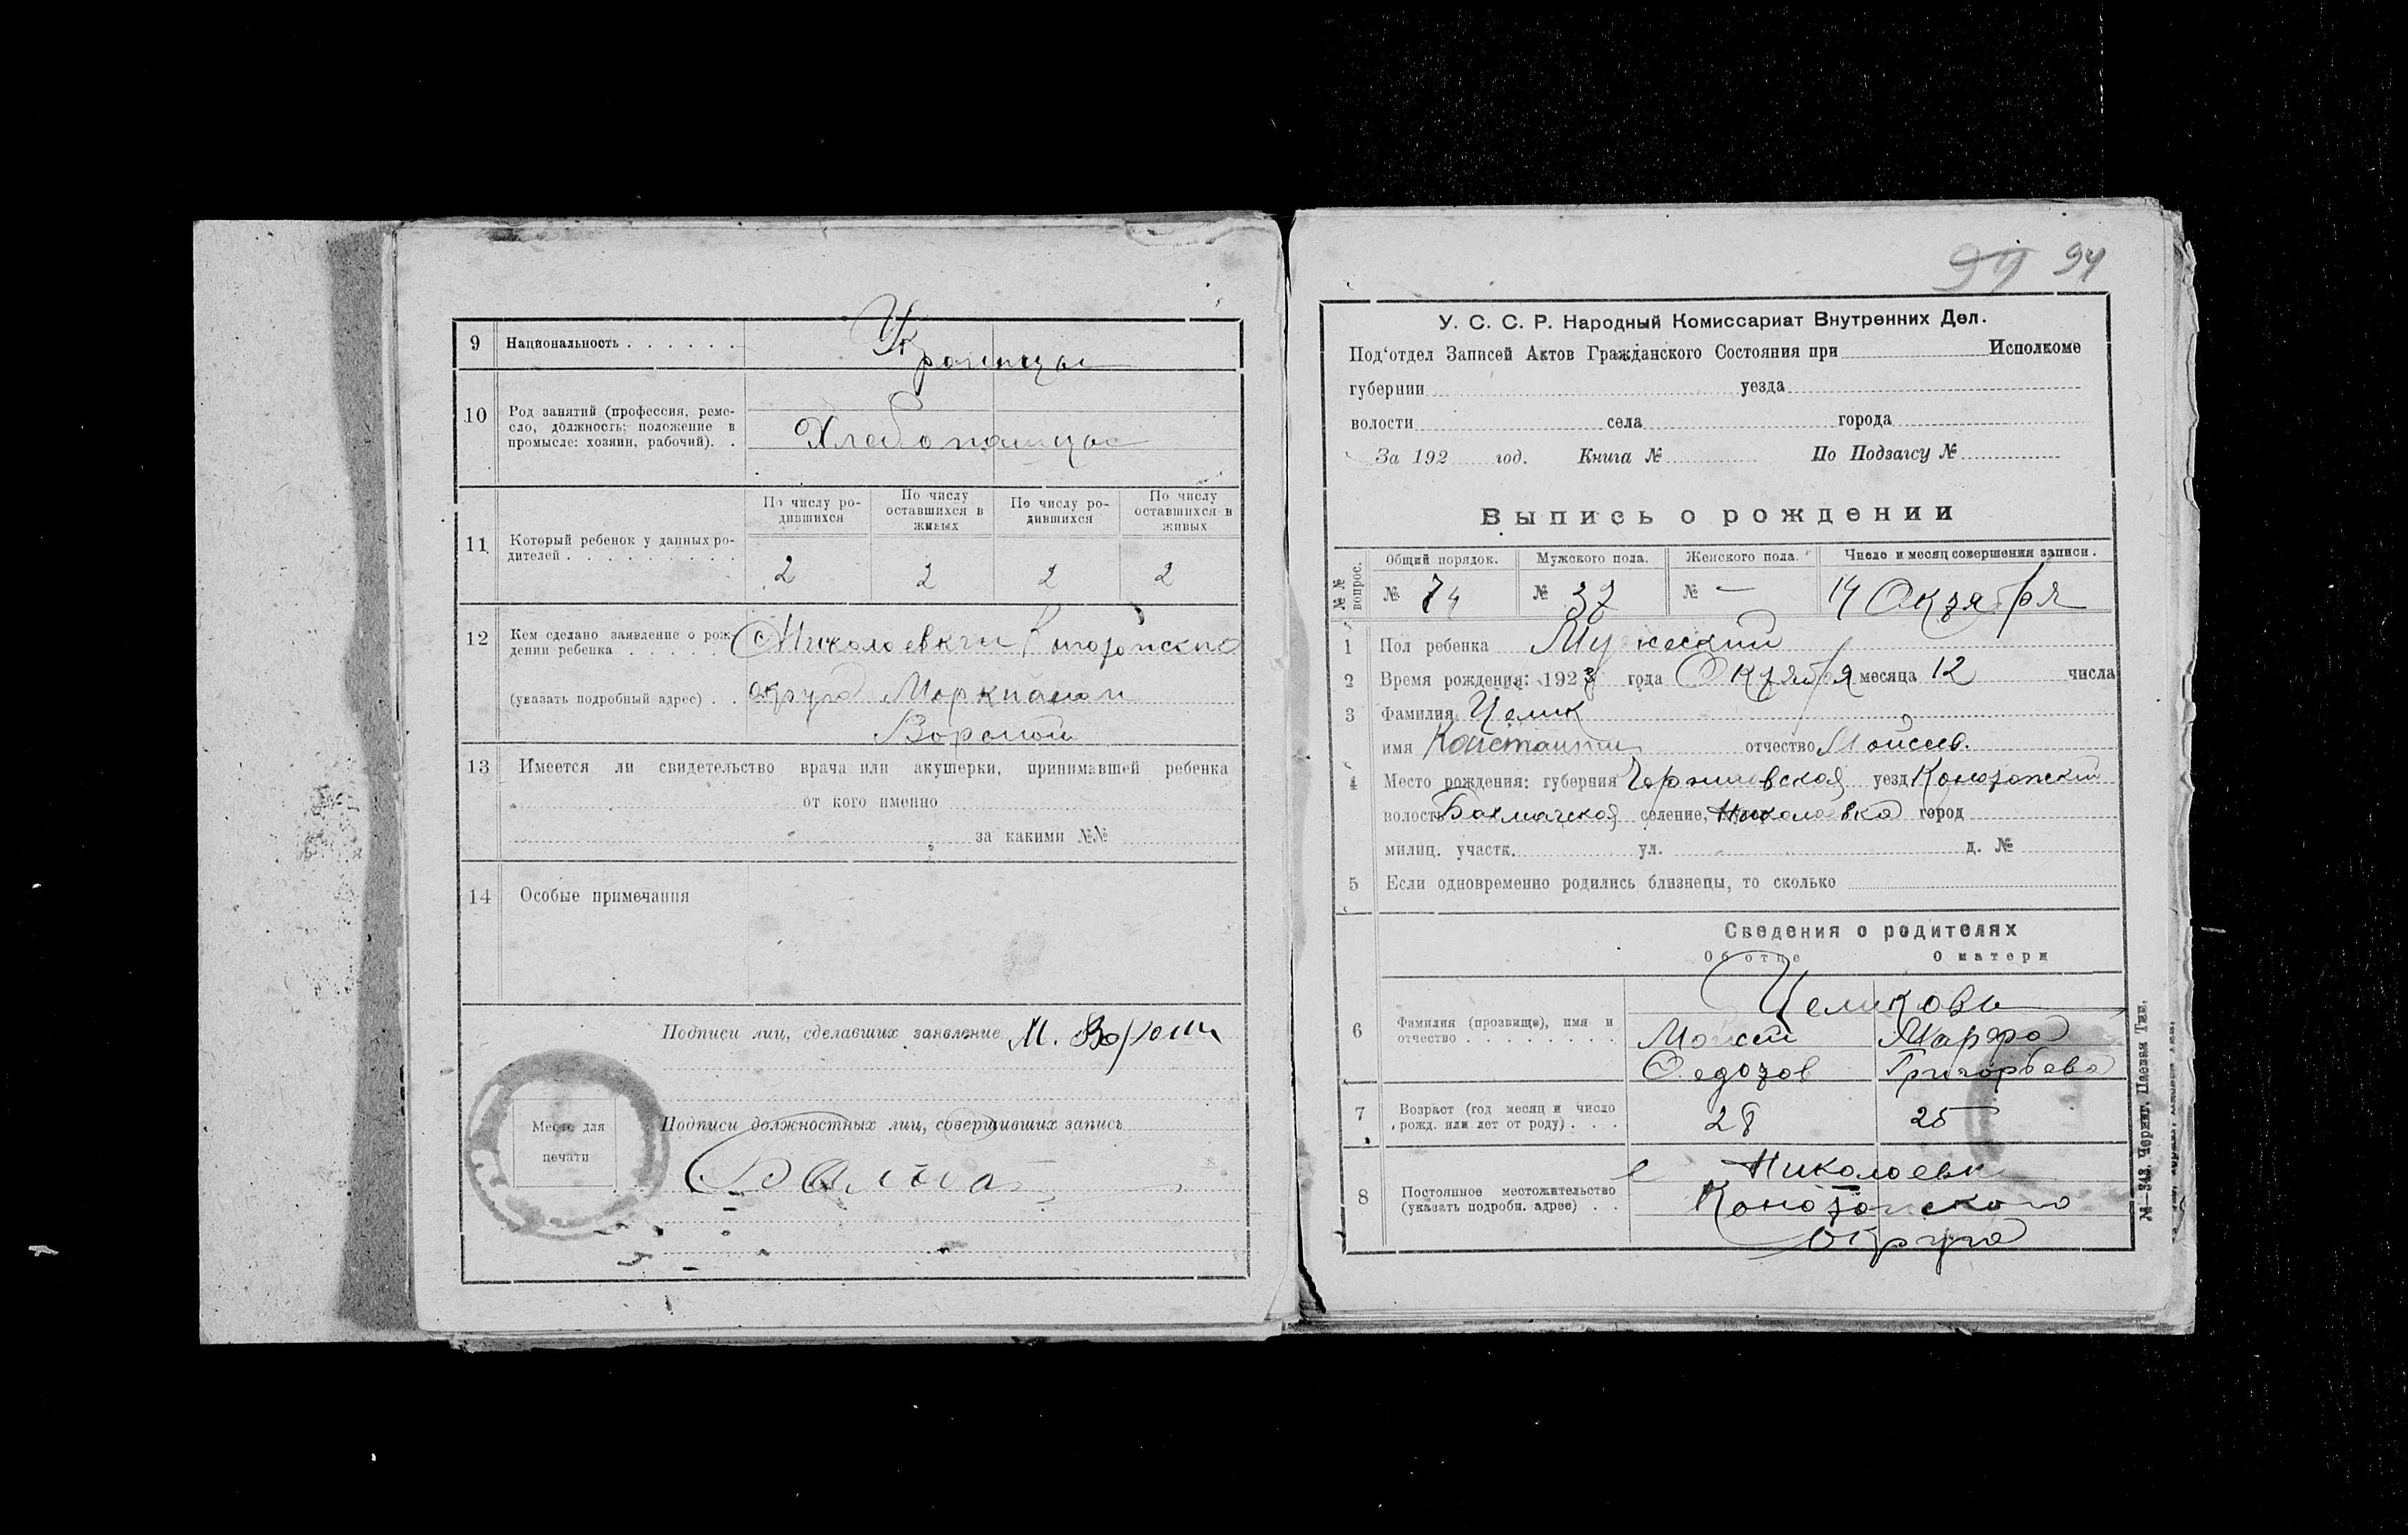 9 Национальность . . . . . .
Украинцы
10 Род занятий (профессия, реме-
сло, должность; положение в
промысле: хозяин, рабочий). .
Хлебопашцы
11 Который ребенок у данных ро-
дителей . . . . . . . . .
По числу ро-
дившихся
По числу
оставшихся в
живых
По числу ро-
дившихся
По числу
оставшихся в
живых
2 2 2 2
12 Кем сделано заявление о рож-
дении ребенка . . . . .
(указать подробный адрес) . .
с Николаевки Конотопского
округа
13 Имеется ли свидетельство врача или акушерки, принимавшей ребенка
от кого именно
за какими №№
14 Особые примечания
Подписи лиц, сделавших заявление М.
Подписи должностных лиц, совершивших запись
Место для
печати
94
У. С. С. Р. Народный Комиссариат Внутренних Дел.
Под‘отдел Записей Актов Гражданского Состояния при Исполкоме
губернии уезда
волости села города
За 192 год. Книга № По Подзагсу №
Выпись о рождении
№№ вопрос.
Общий порядок. Мужского пола. Женского пола. Число и месяц совершения записи.
№ 74 № 37 № — 14 Октября
1 Пол ребенка Мужеский
2 Время рождения: 1923 года Октября месяца 12 числа
3 Фамилия Целик
имя Константин отчество Мойсеев.
4 Место рождения: губерния Черниговская уезд Конотопский
волость Бахмачская селение, Николаевка город
милиц. участк. ул. д. №
5 Если одновременно родились близнецы, то сколько
Сведения о родителях
Об отце О матери
6 Фамилия (прозвище), имя и
отчество . . . . . . . .
Целиковы
Моисей Марфа
Федотов Григорьева
7 Возраст (год месяц и число
рожд. или лет от роду) . . .
28 25
8 Постоянное местожительство
(указать подробн. адрес) . .
с Николаевк
Конотопского
округа
№—343. Черниг. Паевая Тип.